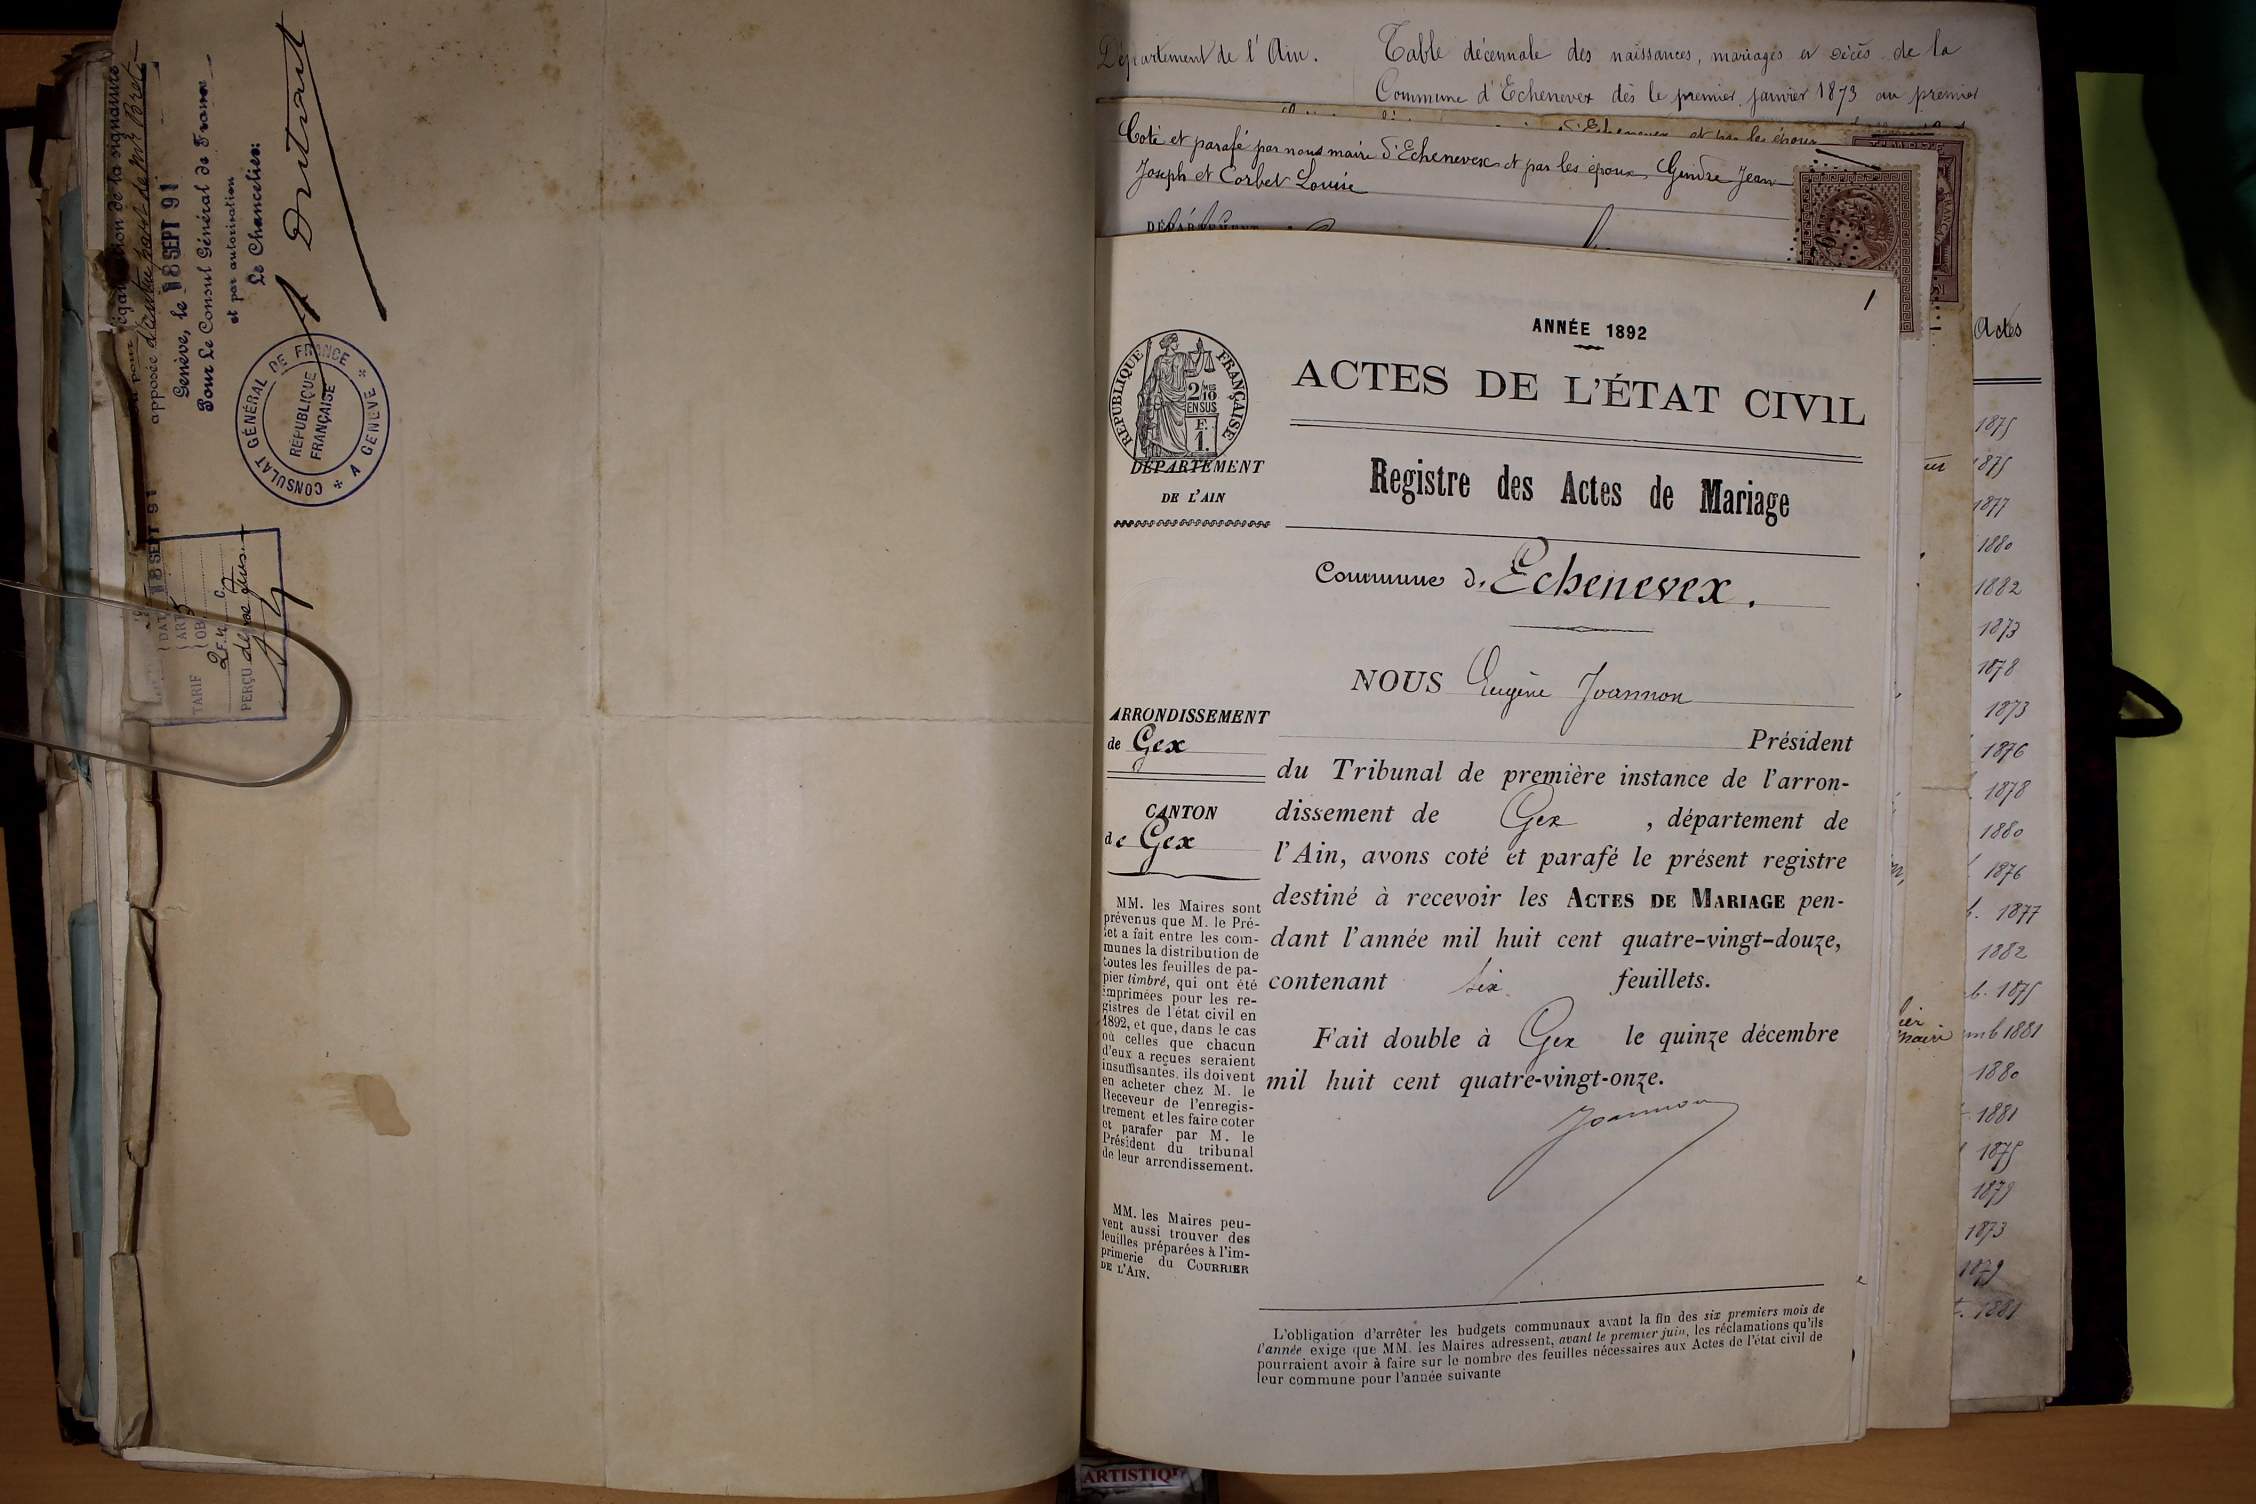 légalisation de la signature
apposée d'autre part de Mr
Genève, le 18 SEPT 91
Pour Le Consul Général de France
et par autorisation
Le Chancelier:
CONSULAT GÉNÉRAL DE FRANCE
A GENÈVE
RÉPUBLIQUE
FRANÇAISE
18 SEPT 91
TARIF
PERÇU
Département de l'Ain.
Table décennale des naissances, mariages et décès de la
Commune d'Echenevex dès le premier janvier 1873 au premier
Coté et parafé par nous maire d'Echenevex et par les époux Gindre Jean
Joseph et Corbet Louise
DÉPARTEMENT
1
ANNÉE 1892
ACTES DE L'ÉTAT CIVIL
RÉPUBLIQUE FRANÇAISE
2/10 MES
EN SUS
F.
1.
DÉPARTEMENT
DE L'AIN
Registre des Actes de Mariage
Commune d'Echenevex.
NOUS Eugène Joannon
Président
du Tribunal de première instance de l'arron-
dissement de Gex, département de
l'Ain, avons coté et parafé le présent registre
destiné à recevoir les ACTES DE MARIAGE pen-
dant l'année mil huit cent quatre-vingt-douze,
contenant six feuillets.
Fait double à Gex le quinze décembre
mil huit cent quatre-vingt-onze.
Joannon
ARRONDISSEMENT
de Gex
CANTON
de Gex
MM. les Maires sont
prévenus que M. le Pré-
fet a fait entre les com-
munes la distribution de
toutes les feuilles de pa-
pier timbré, qui ont été
imprimées pour les re-
gistres de l'état civil en
1892, et que, dans le cas
où celles que chacun
d'eux a reçues seraient
insuffisantes, ils doivent
en acheter chez M. le
Receveur de l'enregis-
trement et les faire coter
et parafer par M. le
Président du tribunal
de leur arrondissement.
MM. les Maires peu-
vent aussi trouver des
feuilles préparées à l'im-
primerie du COURRIER
DE L'AIN.
L'obligation d'arrêter les budgets communaux avant la fin des six premiers mois de
l'année exige que MM. les Maires adressent, avant le premier juin, les réclamations qu'ils
pourraient avoir à faire sur le nombre des feuilles nécessaires aux Actes de l'état civil de
leur commune pour l'année suivante
Actes
1875
1875
1877
1880
1882
1873
1878
1873
1876
1878
1880
1876
1877
1882
1875
1881
1880
1881
1875
1879
1873
1879
1881
ARTISTIQU